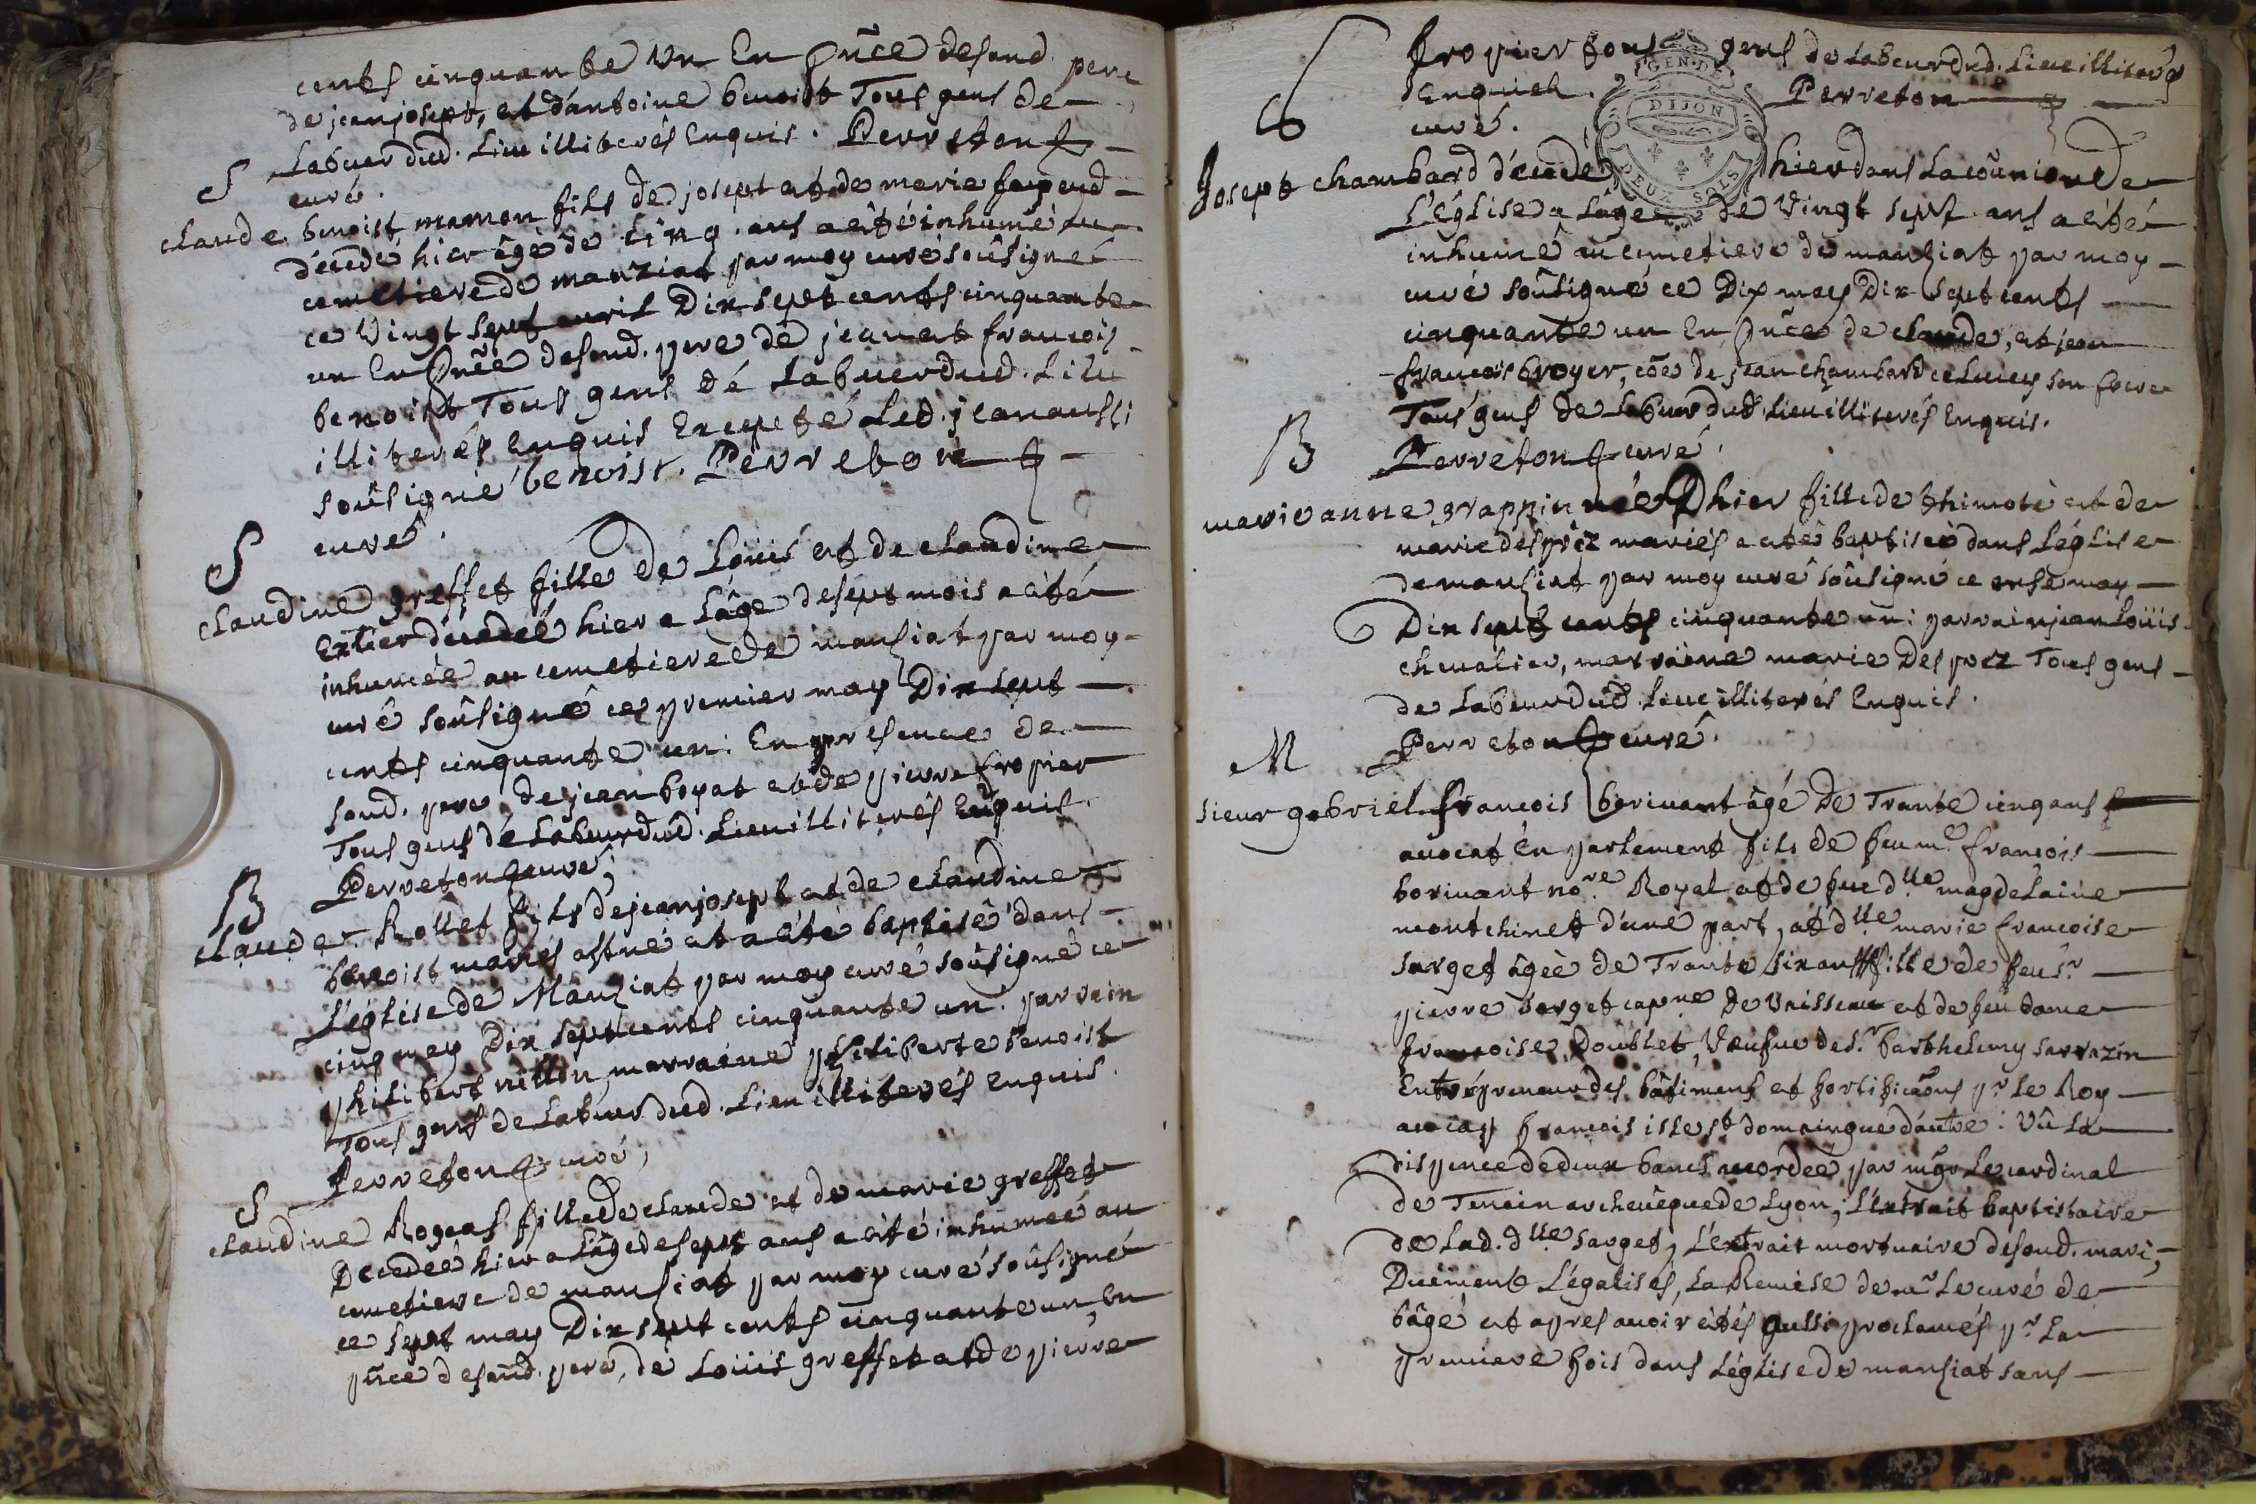 cents cinquante un En pñce desond. pere
de jean josept, et d'antoine benoist Tous gens de
Labeur dud. Lieu illiterés Enquis. Perreton
curé.
S
claude benoist mamon fils de josept et de marie
décedé hier âgé de cinq ans a été inhumé au
cemetiere de manziat par moy curé soûsigné
ce vingt sept avril Dix sept cents cinquante
un En pñce desond. pere de jean et francois
benoist Tous gens de Labeur dud. Lieu
illiterés Enquis Excepté Led. jean aussi
soûsigné benoist. Perreton
curé.
S
claudine greffet fille de Loüis et de claudine
Extier décedée hier a Lâge de sept mois a été
inhumée au cemetiere de manziat par moy
curé soûsigné ce premier may Dix sept
cents cinquante un: En presence de
sond. pere de jean boyat et de pierre fropier
Tous gens de Labeur dud. Lieu illiterés Enquis.
Perreton curé;
B
claude Rollet fils de jean josept et de claudine
benoist mariés est né et a été baptisé dans
L'église de Manziat par moy curé soûsigné ce
cinq may Dix sept cents cinquante un: parrain
philibert nillon, marraine philiberte benoist
Tous gens de Labeur dud. Lieu illiterés Enquis.
Perreton curé;
S
claudine Rogeas fille de claude et de marie greffet
Decedée hier a Lâge de sept ans a été inhumée au
cemetiere de manziat par moy curé soûsigné
ce sept may Dix sept cents cinquante un, En
pñce desond. pere, de Loüis greffet et de pierre
fropier tous gens de Labeur dud. Lieu illiterés
Enquis. Perreton
curé.
GEN. DE
DIJON
DEUX SOLS
S
Josept chambard décedé hier dans La coûnion de
L'Église a Lâge de vingt sept ans a été
inhumé au cemetiere de manziat par moy
curé soûsigné ce Dix may Dix sept cents
cinquante un En pñce de claude, et jean
francois broyer, cõe de jean chambard son frere
Tous gens de Labeur dud. Lieu illiterés Enquis.
Perreton curé.
B
marie anne grappin née hier fille de thimoté et de
marie desprez mariés a été baptisée dans L'église
de manziat par moy curé soûsigné ce onse may
Dix sept cents cinquante un: parrain jean Loüis
chevalier, marraine marie Desprez Tous gens
de Labeur dud. Lieu illiterés Enquis.
Perreton curé.
M
sieur gabriel francois borivant âgé De Trante cinq ans
avocat En parlement fils de feu me. francois
borivant nore. Royal et de fue dlle magdelaine
montchinet d'une part, et dlle marie francoise
sarget âgée de Trante six ans fille de feu sr.
pierre sarget capne De vaisseau et de feu dame
francoise Doublet, Veufue de sr. barthelemy sarrazin
Entrépreneur des bâtimens et fortificaõns pr. Le Roy
au cap francois isle st domaingue d'autre: vû La
dispence de deux bancs accordée par mgr Le cardinal
de Tencin archevêque de Lyon; L'extrait baptistaire
de Lad. dlle sarget, L'extrait mortuaire desond. mari;
Duëment Légalisés, La Remise de mr. Le curé de
bâgé et apres avoir étés aussi proclamés pr. La
premiere fois dans L'église de manziat sans